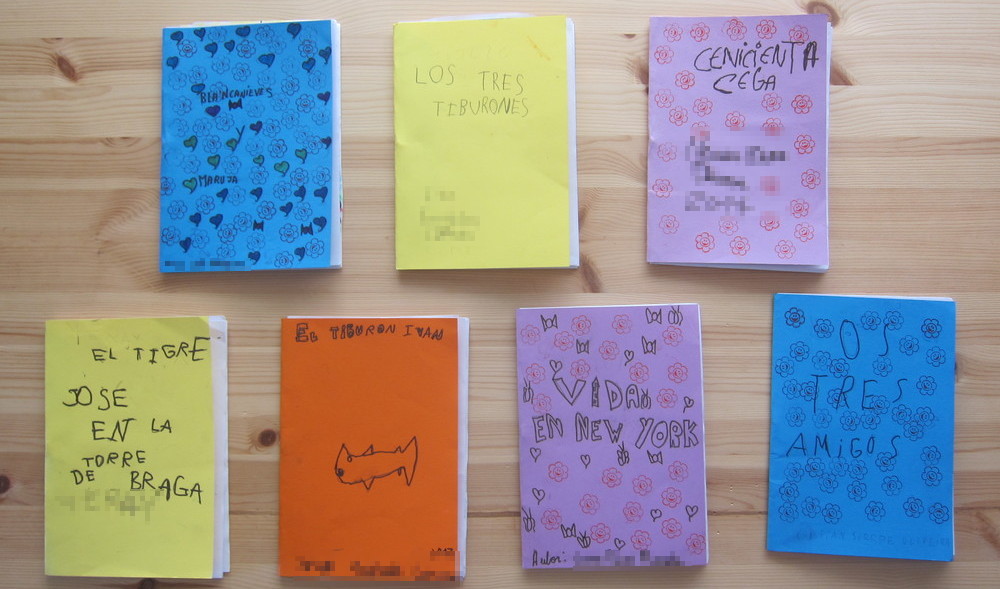 BLANCANIEVES
Y
MARUJA
LOS TRES
TIBURONES
CENICIENTA
CEGA
EL TIGRE
JOSÉ
EN LA
TORRE
DE BRAGA
EL TIBURON IVAN
VIDA
EN NEW YORK
Autor:
OS
TRES
AMIGOS